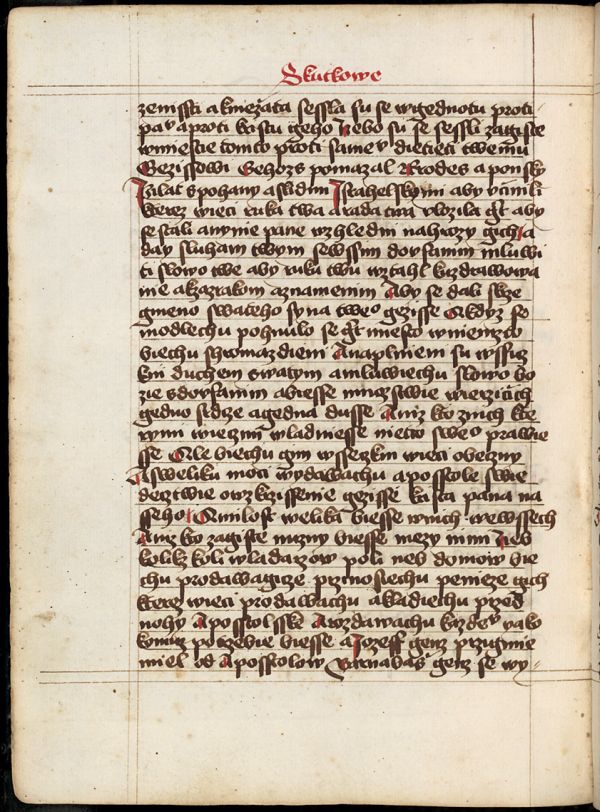 Skutkowe
zemssti a kniezata sessla su se w gednotu proti
pav a proti kristu geho Nebo su se sessli zagiste
w miestie tomto proti swatev dietieti twemu
Gezissowi Gehozs pomazal Erodes a ponsky
Pilat s pohany a s lidmi Israhelskymi aby vcinili
kterez wieci ruka twa a rada twa vlozila gt aby
se stali a nynie pane wzhledni na hrozy gich A
day sluham twym se wssim dorfanim mluwi
ti slowo twe aby ruku twu wztahl k vzdrawowa
nie a k zazrakom a znamenim Aby se dali skrze
gmeno swateho syna tweo gezisse A kdyz se
modlechu pohnulo se gt miesto w niemzto
biechu shromazdieni A naplnieni su wssicz
kni duchem swatym a mluwiechu slowo bo
zie s dorfanim a biesse mnozstwie wierzicich
gedno srdze a gedna dusse Aniz kto z nich kte
rymi wiecmi wladniesse nieco sweo prawie
sse Ale biechu gim wsseczkni wieci obeczny
A s weliku moci wydawachu apposstole swie
dectwie o wzkrzissenie gezisse krista pana na
sseho A milost welika biesse w nich we wssech
Aniz kto zagiste nuzny biesse mezy nimi Neb
kolikzkoli wladarzow poli neb domow bie
chu prodawagicze przinosiechu penieze gich
kterez wieci prodawachu a kladiechu przed
nohy Aposstolsske A rozdawachu kazdev yako
komuz potrzebie biesse A Jozeff genz przigmie
miel od Aposstolow Barnabas genz se wy